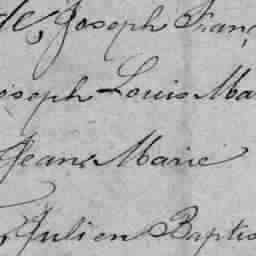 de, Joseph Franç
oseph Louis Ma
Jean Marie
Julien Baptis